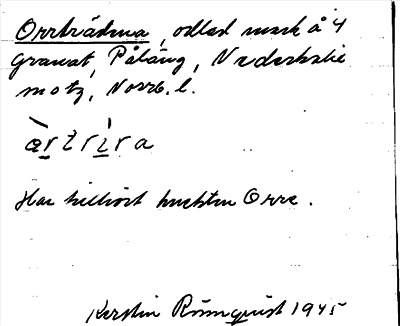 Orrträdena, odlad mark å 4
granat, Påläng, Nederkalix
motz, Norrb. l.
ærtrira
Har tillhört knekten Orre.
Kerstin Rönnquist 1945